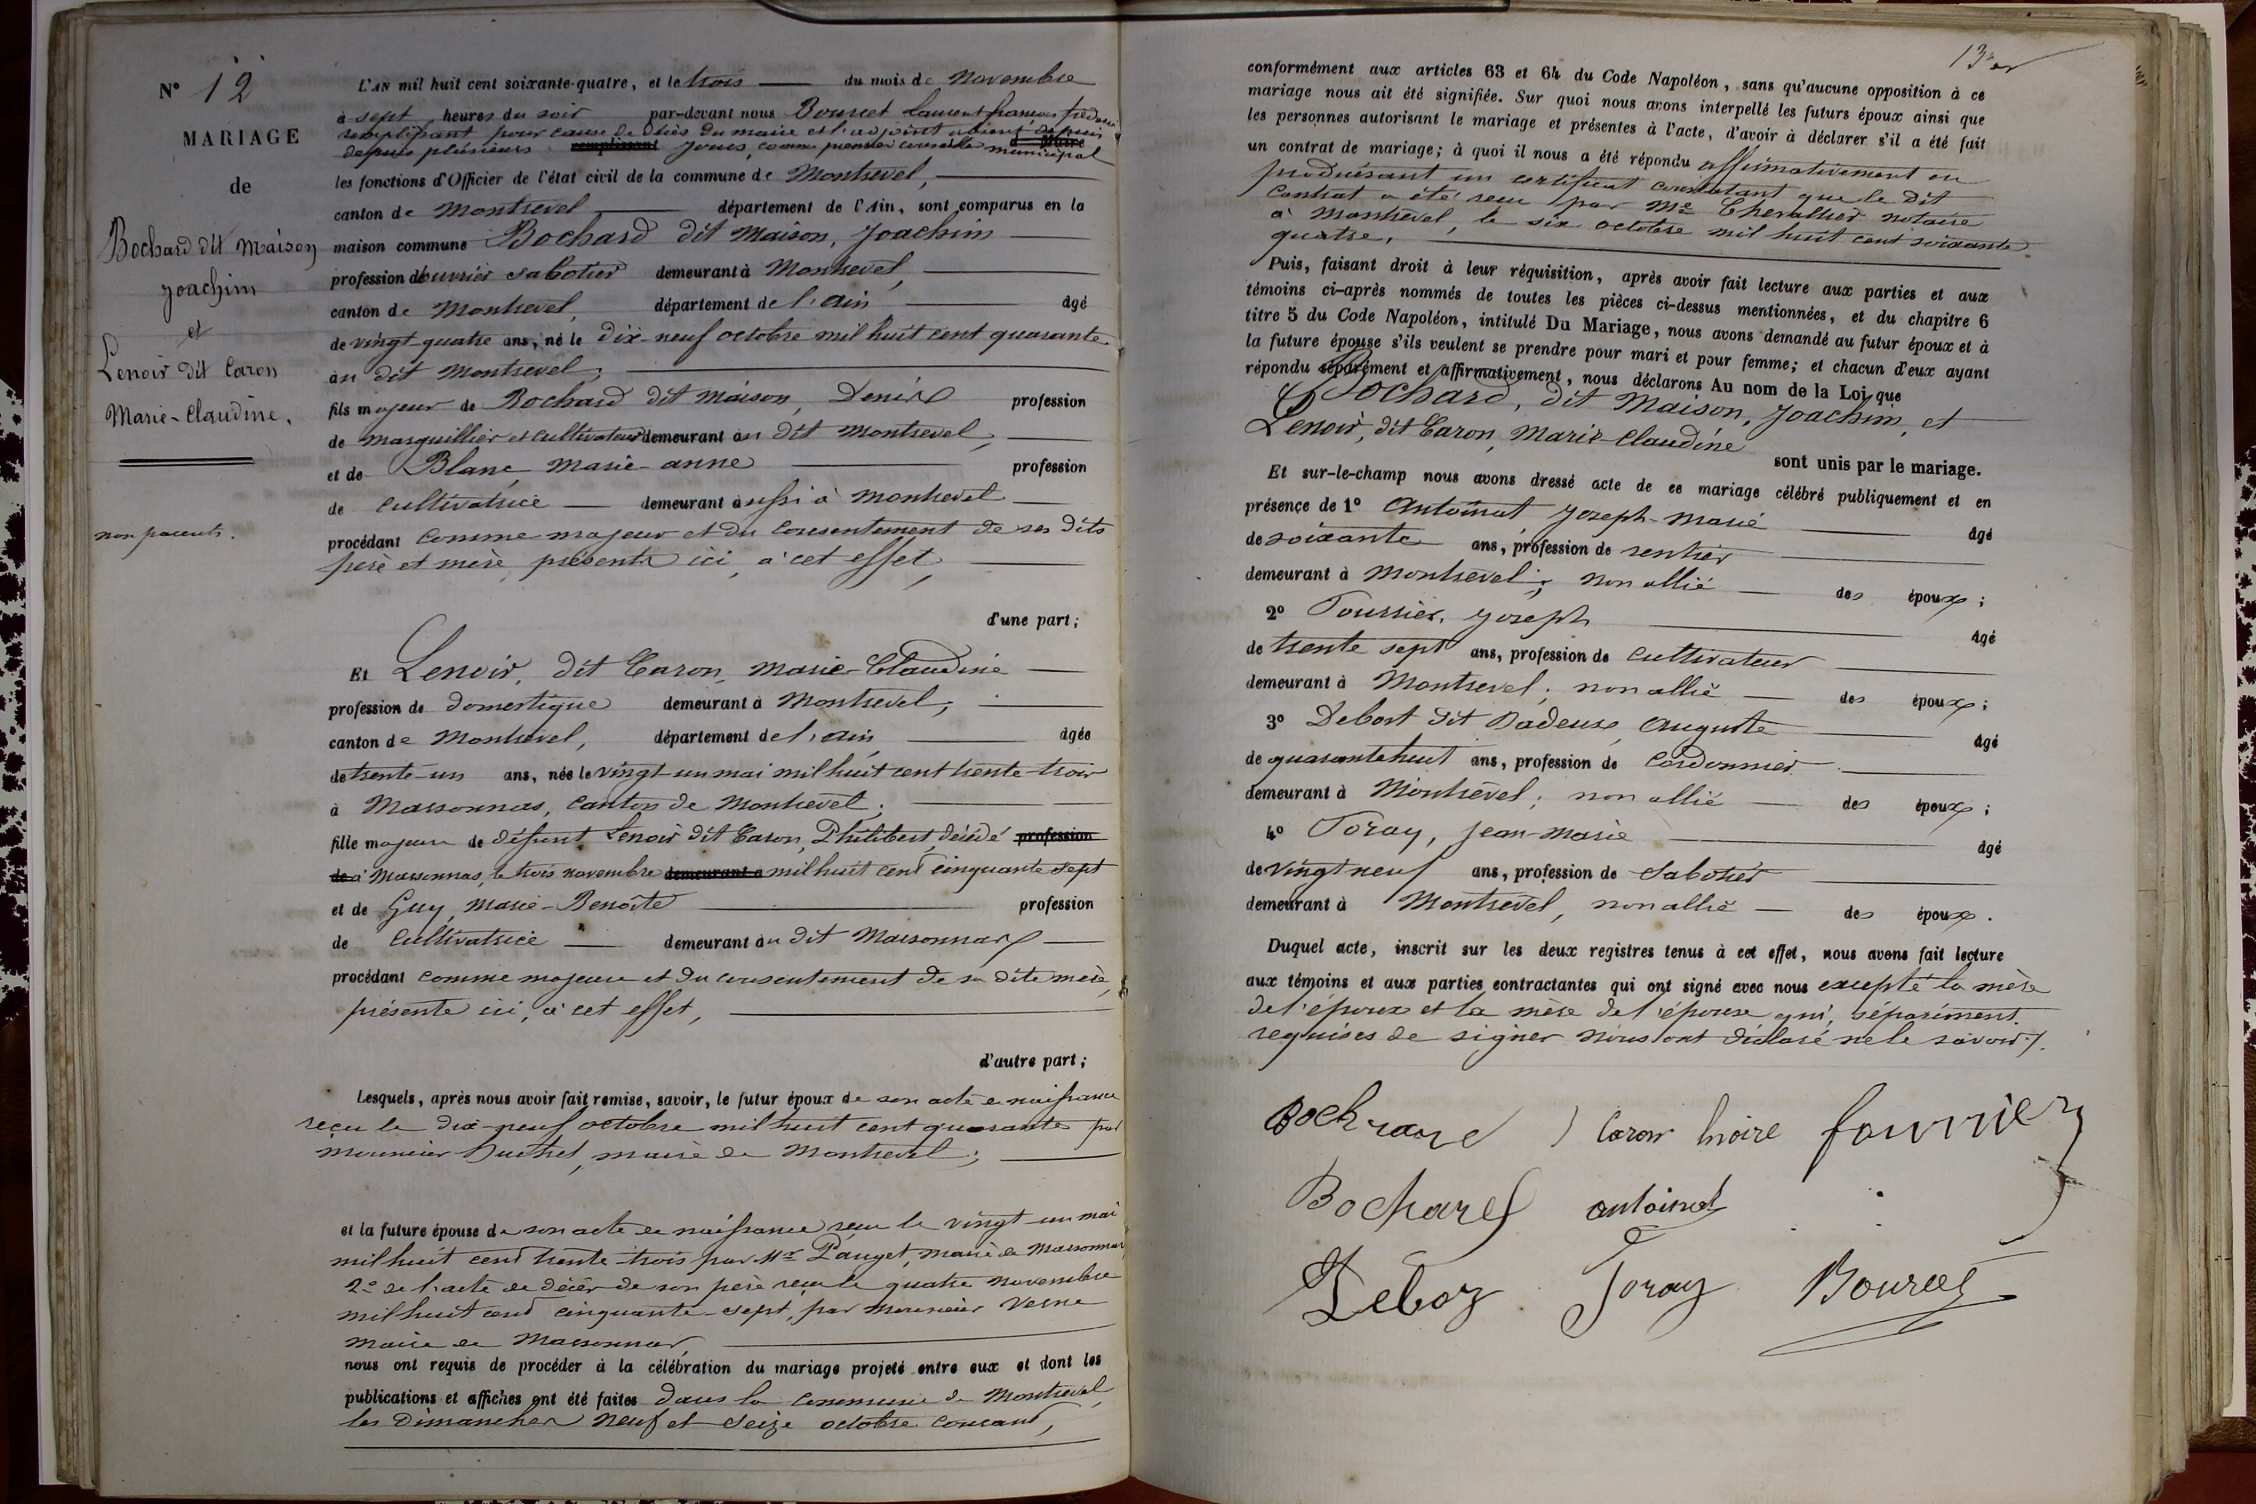 N° 12
MARIAGE
de
Bochard dit Maison
Joachim
et
Lenoir dit Caron
Marie-Claudine.
non parents.
L'AN mil huit cent soixante-quatre, et le trois du mois de Novembre
à sept heures du soir par-devant nous Bourcet Laurent françois
remplissant pour cause de décès du maire et l'adjoint absent depuis
depuis plusieurs remplissant jours, comme premier conseiller municipal d Maire
les fonctions d'Officier de l'état civil de la commune de Montrevel,
canton de Montrevel département de l'Ain, sont comparus en la
maison commune Bochard dit Maison, Joachim
profession d'ouvrier sabotier demeurant à Montrevel,
canton de Montrevel, département de l'ain âgé
de vingt quatre ans, né le dix-neuf octobre mil huit cent quarante
au dit Montrevel;
fils majeur de Bochard dit Maison, Denis profession
de marguillier et cultivateur demeurant au dit Montrevel,
et de Blanc, Marie-anne profession
de cultivatrice demeurant aussi à Montrevel
procédant comme majeur et du consentement de ses dits
père et mère, présents ici, à cet effet,
d'une part;
Et Lenoir, dit Caron, Marie-Claudine
profession de domestique demeurant à Montrevel,
canton de Montrevel, département de l'ain, âgée
de trente-un ans, née le vingt-un mai mil huit cent trente-trois
à Marsonnas, canton de Montrevel.
fille majeure de défunt Lenoir dit Caron, Philibert, décédé profession
de à Marsonnas, le trois novembre demeurant à mil huit cent cinquante sept
et de Guy, Marie-Benoîte profession
de cultivatrice demeurant au dit Marsonnas
procédant comme majeure et du consentement de sa dite mère,
présente ici, à cet effet,
d'autre part;
Lesquels, après nous avoir fait remise, savoir, le futur époux de son acte de naissance
reçu le dix-neuf octobre mil huit cent quarante par
monsieur Duthel, maire de Montrevel;
et la future épouse de son acte de naissance reçu le vingt-un mai
mil huit cent trente-trois par Mr Pauget, maire de Marsonnas,
2° de l'acte de décès de son père reçu le quatre novembre
mil huit cent cinquante-sept, par monsieur Verne
maire de Marsonnas,
nous ont requis de procéder à la célébration du mariage projeté entre eux et dont les
publications et affiches ont été faites dans la commune de Montrevel,
les Dimanches neuf et seize octobre courant,
13
conformément aux articles 63 et 64 du Code Napoléon, sans qu'aucune opposition à ce
mariage nous ait été signifiée. Sur quoi nous avons interpellé les futurs époux ainsi que
les personnes autorisant le mariage et présentes à l'acte, d'avoir à déclarer s'il a été fait
un contrat de mariage; à quoi il nous a été répondu affirmativement en
produisant un certificat constatant que le dit
contrat a été reçu par Me Chevallier notaire
à Montrevel, le six octobre mil huit cent soixante
quatre.
Puis, faisant droit à leur réquisition, après avoir fait lecture aux parties et aux
témoins ci-après nommés de toutes les pièces ci-dessus mentionnées, et du chapitre 6
titre 5 du Code Napoléon, intitulé Du Mariage, nous avons demandé au futur époux et à
la future épouse s'ils veulent se prendre pour mari et pour femme; et chacun d'eux ayant
répondu séparément et affirmativement, nous déclarons Au nom de la Loi que
Bochard, dit Maison, Joachim, et
Lenoir, dit Caron, Marie-Claudine
sont unis par le mariage.
Et sur-le-champ nous avons dressé acte de ce mariage célébré publiquement et en
présence de 1° Antoinat Joseph-Marie âgé
de soixante ans, profession de rentier
demeurant à Montrevel; non allié des époux;
2° Fourrier, Joseph âgé
de trente sept ans, profession de cultivateur
demeurant à Montrevel; non allié des époux;
3° Debost dit Badeux, Auguste âgé
de quarante huit ans, profession de Cordonnier
demeurant à Montrevel; non allié des époux;
4° Foray, Jean-Marie âgé
de vingt neuf ans, profession de Sabotier
demeurant à Montrevel, non allié des époux.
Duquel acte, inscrit sur les deux registres tenus à cet effet, nous avons fait lecture
aux témoins et aux parties contractantes qui ont signé avec nous excepté la mère
de l'époux et la mère de l'épouse qui, séparément
requises de signer nous ont déclaré ne le savoir.
Bochard Caron fourrier
Bochard antoinat
Deboz foray Bourcet